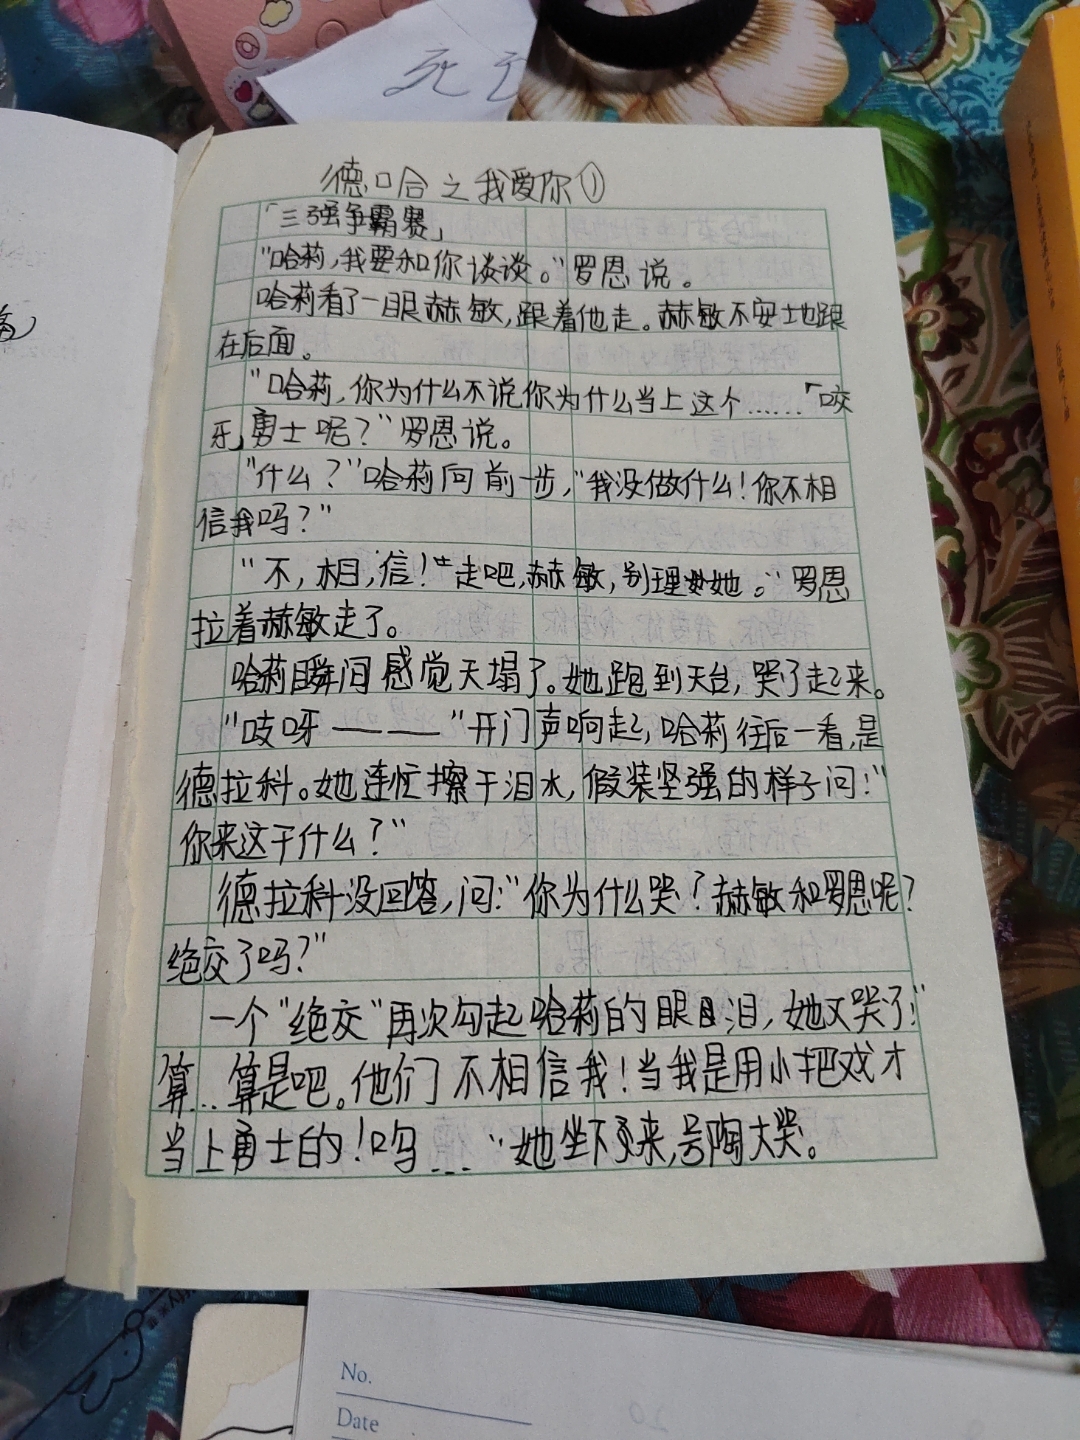 死亡
德哈之我爱你①
「三强争霸赛」
"哈莉,我要和你谈谈。"罗恩说。
哈莉看了一眼赫敏,跟着他走。赫敏不安土地跟
在后面。
"哈莉,你为什么不说你为什么当上这个……「咬
牙」勇士呢?"罗恩说。
"什么?"哈莉向前一步,"我没做什么!你不相
信我吗?"
"不,相,信!"走吧,赫敏,别理她。"罗恩
拉着赫敏走了。
哈莉瞬间感觉天塌了。她跑到天台,哭了起来。
"吱呀——— "开门声响起,哈莉往后一看,是
德拉科。她连忙擦干泪水,假装坚强的样子问:"
你来这干什么?"
德拉科没回答,问:"你为什么哭?赫敏和罗恩呢?
绝交了吗?"
一个"绝交"再次勾起哈莉的眼泪,她又哭了:"
算…算是吧。他们不相信我!当我是用小把戏才
当上勇士的!呜……"她坐下来,号陶大哭。
No.
Date